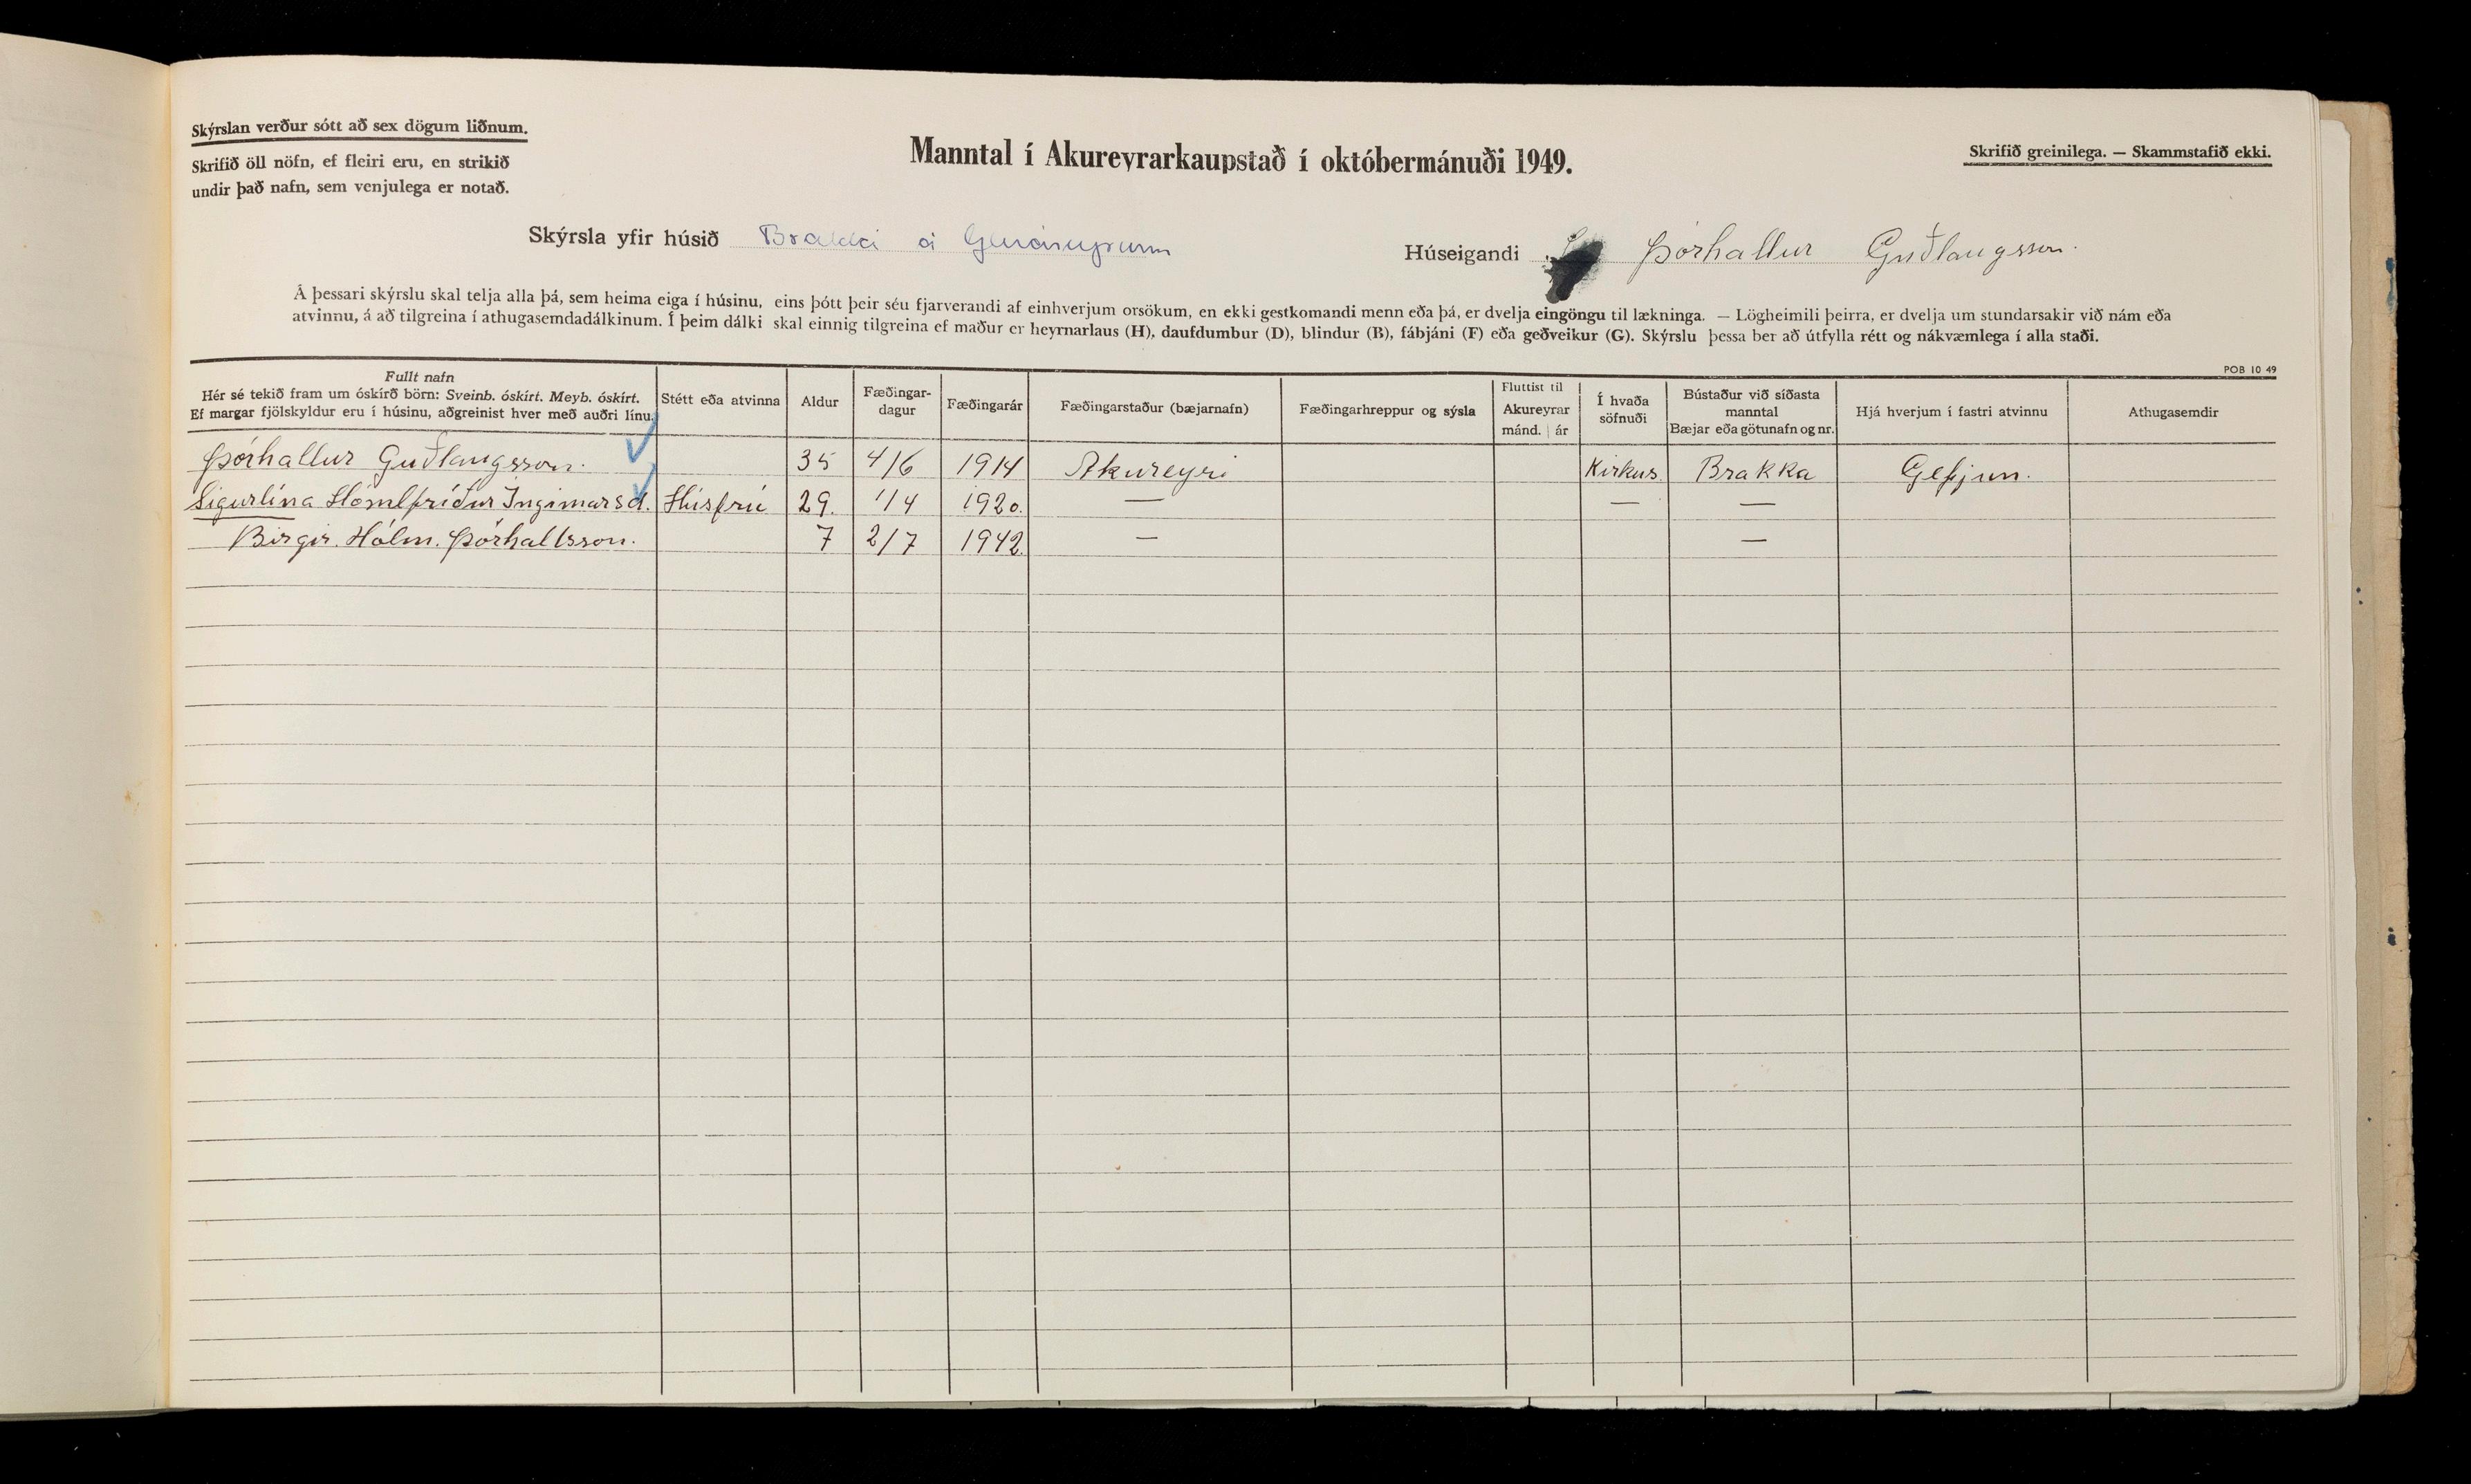 Skýrslan verður sótt að sex dögum liðnum.
Skrifið öll nöfn, ef fleiri eru, en strikið
undir það nafn, sem venjulega er notað.
Manntal í Akureyrarkaupstað í októbermánuði 1949.
Skrifið greinilega. — Skammstafið ekki.
Skýrsla yfir húsið Brakka á Gleráreyrum
Húseigandi Þórhallur Guðlaugsson.
Á þessari skýrslu skal telja alla þá, sem heima eiga í húsinu, eins þótt þeir séu fjarverandi af einhverjum orsökum, en ekki gestkomandi menn eða þá, er dvelja eingöngu til lækninga. — Lögheimili þeirra, er dvelja um stundarsakir við nám eða
atvinnu, á að tilgreina í athugasemdadálkinum. Í þeim dálki skal einnig tilgreina ef maður er heyrnarlaus (H), daufdumbur (D), blindur (B), fábjáni (F) eða geðveikur (G). Skýrslu þessa ber að útfylla rétt og nákvæmlega í alla staði.
POB 10 49
Fullt nafn
Hér sé tekið fram um óskírð börn: Sveinb. óskírt. Meyb. óskírt.
Ef margar fjölskyldur eru í húsinu, aðgreinist hver með auðri línu.
Stétt eða atvinna
Aldur
Fæðingar-
dagur
Fæðingarár
Fæðingarstaður (bæjarnafn)
Fæðingarhreppur og sýsla
Fluttist til
Akureyrar
mánd. | ár
Í hvaða
söfnuði
Bústaður við síðasta
manntal
Bæjar eða götunafn og nr.
Hjá hverjum í fastri atvinnu
Athugasemdir
Þórhallur Guðlaugsson. 35 4/6 1914 Akureyri Kirkus. Brakka Gefjun.
Sigurlína Hómlfríður Ingimarsd. Húsfrú 29. 1/4 1920. — — —
Birgir. Hólm. Þórhallsson. 7 2/7 1942. — —